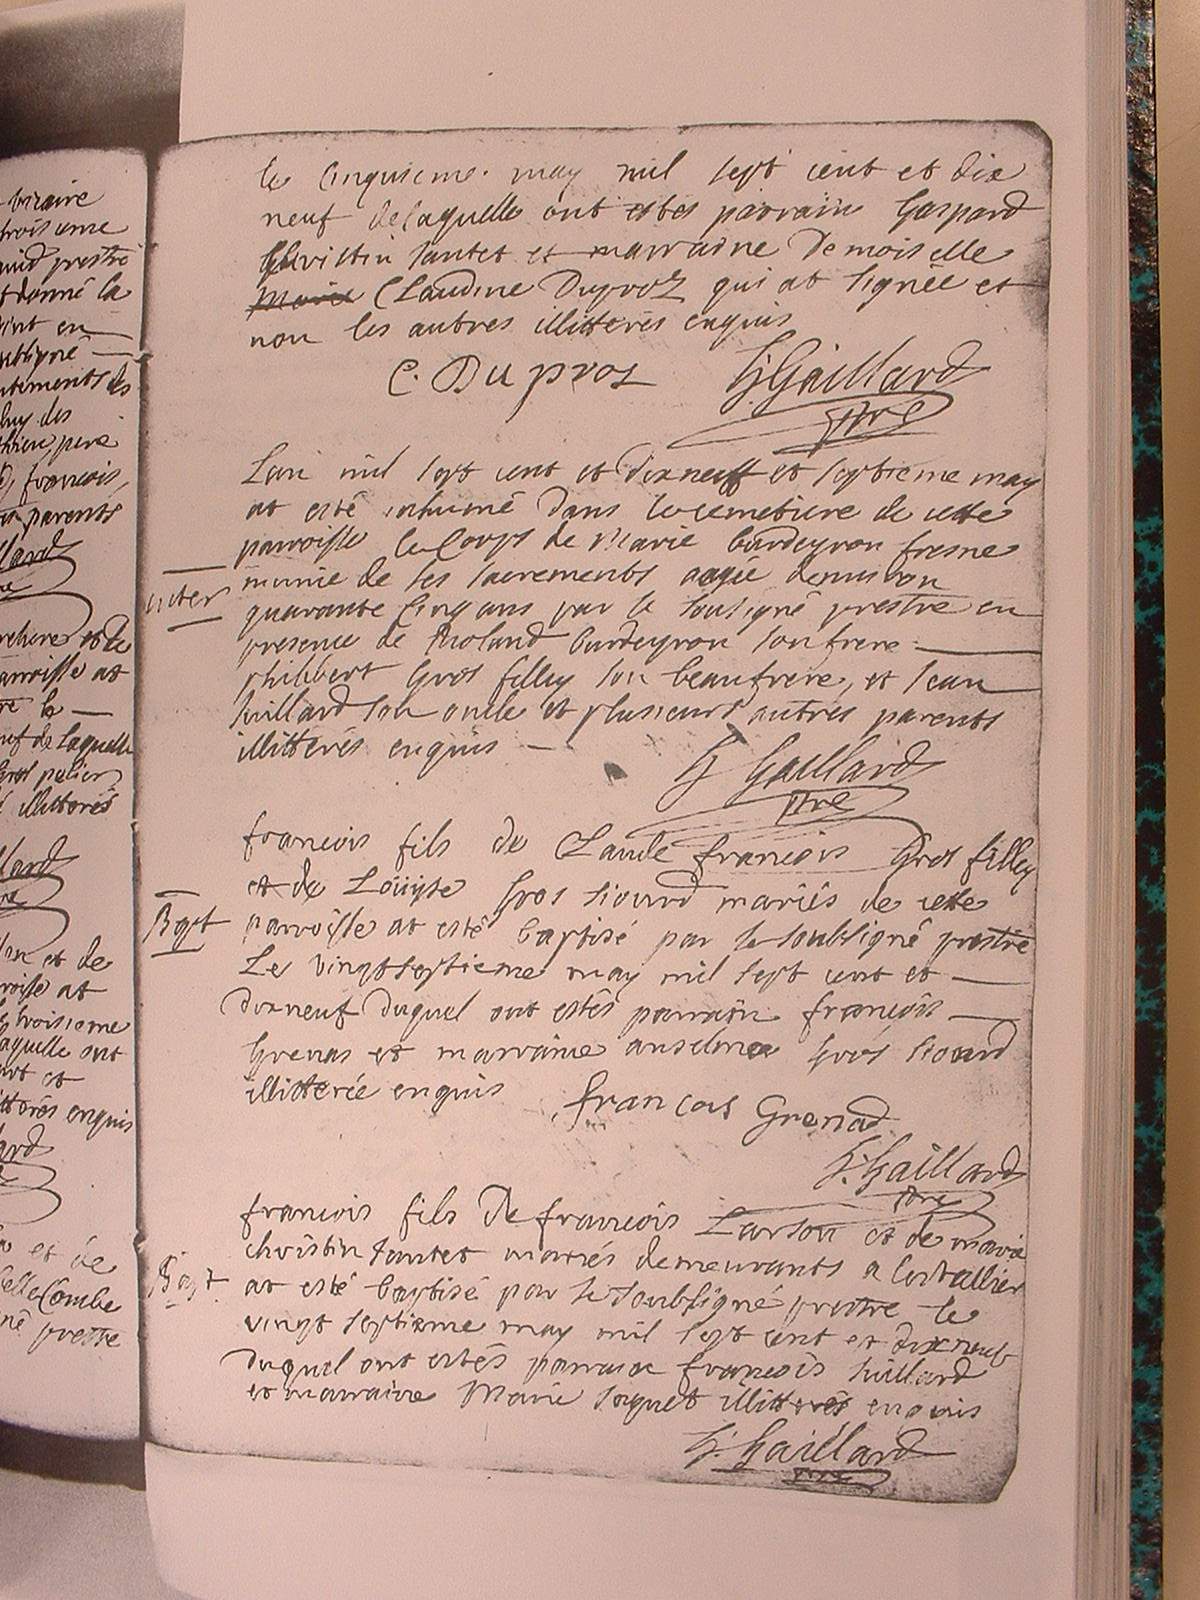 vicaire
troisieme
prestre
donné la
en
soubsigné
des
pere
françois,
parents
et de
parroisse at
le
de laquelle
gros pelier
illitterés
et de
at
troisieme
laquelle ont
et
illitterés enquis
et de
belleCombe
prestre
le cinquieme may mil sept cent et dix
neuf de laquelle ont estés parrain Gaspard
Christin tantet et marraine Demoiselle
Marie Claudine Duproz qui at signée et
non les autres illitterés enquis
C. Duproz G. Gaillard
ptre
Lan mil sept cent et dixneuff et septieme may
at esté inhumé dans le cemetiere de cette
parroisse le Corps de Marie burdeyron fresne
munie de ses sacrements aagée denviron
quarante Cinq ans par le soussigné prestre en
presence de Roland burdeyron son frere
philibert gros filley son beaufrere, et Jean
Juillard son oncle et plusieurs autres parents
illitterés enquis
G Gaillard
ptre
françois fils de Claude françois gros filley
Bapt
et de Loüyse gros siourd mariés de cette
parroisse at esté baptisé par le soubsigné prestre
Le vingtseptieme may mil sept cent et
dixneuf duquel ont estés parrain françois
Grenas et marraine anselma gros siourd
illitterée enquis
francois Grenad
G. Gaillard
ptre
françois fils de françois Larson et de marie
Bapt
christin tantet mariés demeurants a
at esté baptisé par le soubsigné prestre le
vingt septieme may mil sept cent et dixneuf
duquel ont estés parrain françois Juillard
et marraine Marie soquet illitterés enquis
G. Gaillard
ptre